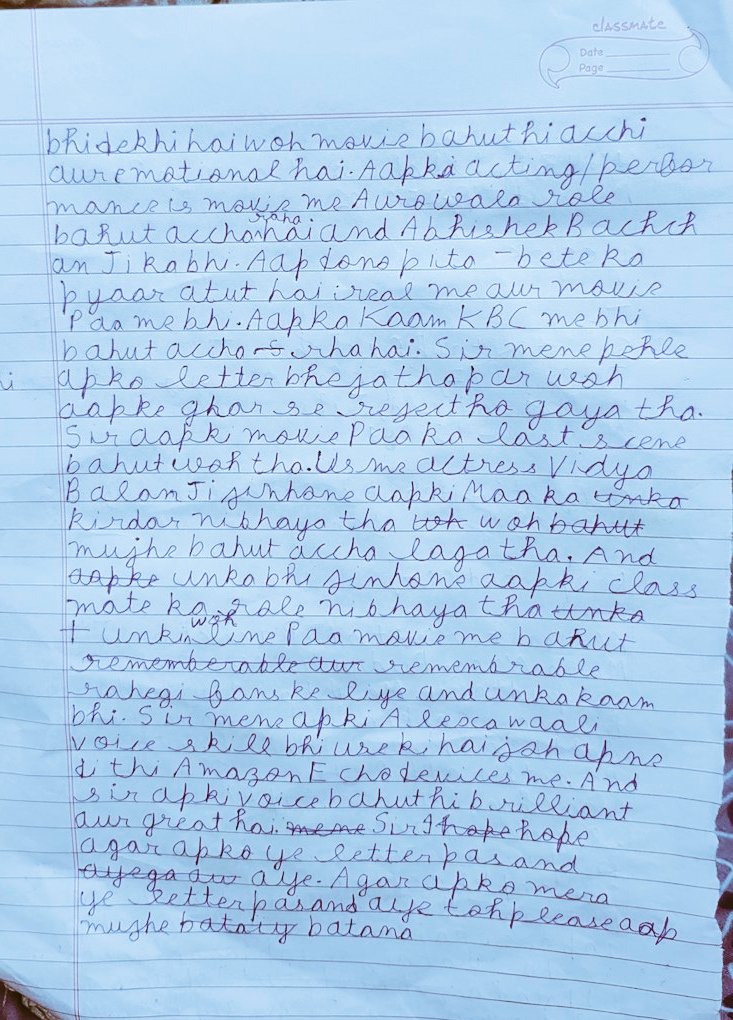 classmate
Date
Page
bhi dekhi hai woh movie bahut hi acchi
aur emotional hai. Aapki acting/perfor
mance is movie me Auro wala role
bahut accha raha hai and Abhishek Bachch
an Ji ka bhi. Aap dono pita - bete ka
pyaar atut hai ireal me aur movie
Paa me bhi. Aapka Kaam KBC me bhi
bahut accha rha hai. Sir mene pehle
apko letter bheja tha par woh
aapke ghar se reject ho gaya tha.
Sir aapki movie Paa ka last scene
bahut woh tha. Us me actress Vidya
Balan Ji jinhone aapki Maa ka unka
kirdar nibhaya tha woh woh bahut
mujhe bahut accha laga tha. And
aapke unka bhi jinhone aapki class
mate ka role nibhaya tha unka
+ unki woh line Paa movie me bahut
rememberable aur remembrable
rahegi fans ke liye and unka kaam
bhi. Sir mene apki Alexa waali
voice skill bhi use ki hai joh apne
di thi Amazon Echo devices me. And
sir apki voice bahut hi brilliant
aur great hai. mene Sir I hope hope
agar apko ye letter pasand
ayega aur aye. Agar apko mera
ye letter pasand aiye toh please aap
mujhe bataiy batana